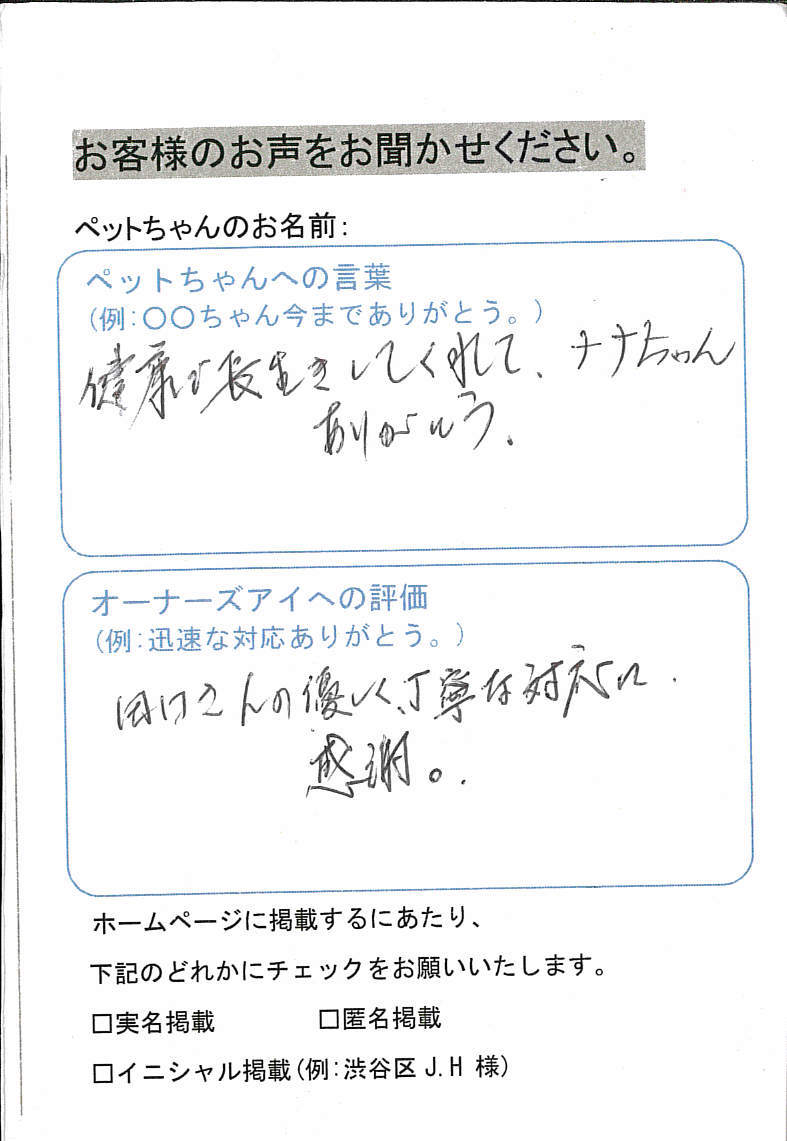 お客様のお声をお聞かせください。
ペットちゃんのお名前:
ペットちゃんへの言葉
(例:〇〇ちゃん今までありがとう。)
健康で長生きしてくれて、ナナちゃん
ありがとう。
オーナーズアイへの評価
(例:迅速な対応ありがとう。)
田口さんの優しく、丁寧な対応に
感謝。
ホームページに掲載するにあたり、
下記のどれかにチェックをお願いいたします。
□実名掲載 □匿名掲載
□イニシャル掲載(例:渋谷区 J.H 様)